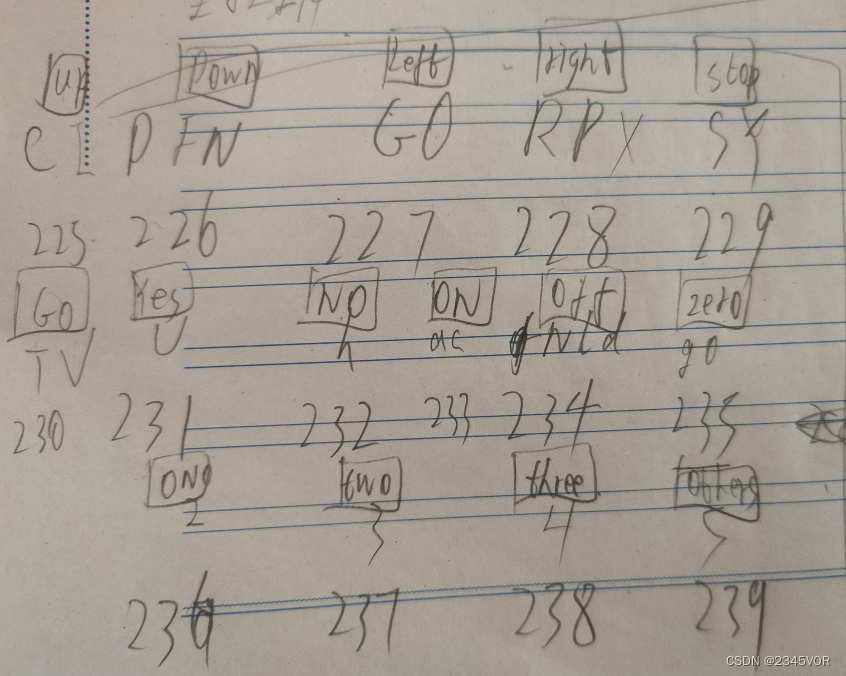 up Down Left right stop
C I D F N G O R P X S Y
225 226 227 228 229
Go Yes NO ON Off zero
T V U h ac N L d g o
230 231 232 233 234 235
ONe two three
2 3 4 5
236 237 238 239
CSDN @2345VOR